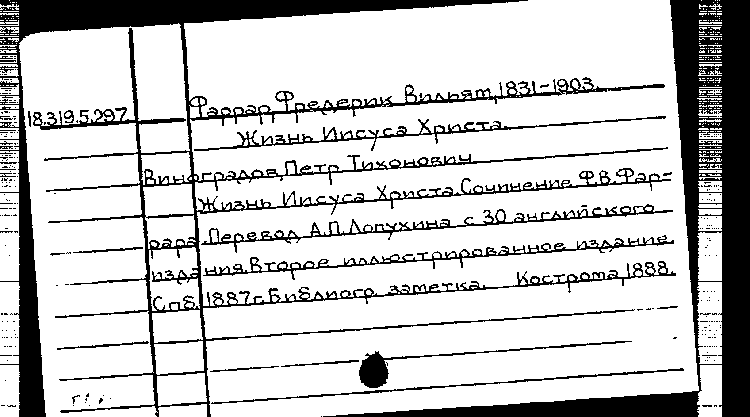 18.319.5.297 Фаррар, Фредерик Вильям, 1831-1903.
Жизнь Иисуса Христа.
Виноградов, Петр Тихонович
Жизнь Иисуса Христа. Сочинение Ф.В. Фар=
рара. Перевод А.П. Лопухина с 30 английского
издания. Второе иллюстрированное издание.
Спб. 1887 г. Библиогр. заметка. Кострома, 1888.